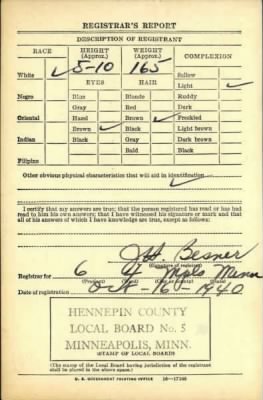 REGISTRAR'S REPORT
DESCRIPTION OF REGISTRANT
RACE HEIGHT (Approx.) WEIGHT (Approx.) COMPLEXION
5-10 165 Sallow
White ✓ EYES HAIR Light ✓
Negro Blue Blonde Ruddy
Gray Red Dark
Oriental Hazel Brown ✓ Freckled
Brown ✓ Black Light brown
Indian Black Gray Dark brown
Bald Black
Filipino
Other obvious physical characteristics that will aid in identification
I certify that my answers are true; that the person registered has read or has had
read to him his own answers; that I have witnessed his signature or mark and that
all of his answers of which I have knowledge are true, except as follows:
Besner
(Signature of registrar)
Registrar for 6 4 Mpls Minn
(Precinct) (Ward) (City or county)
Date of registration Oct-16-1940
HENNEPIN COUNTY
LOCAL BOARD No. 5
MINNEAPOLIS, MINN.
(STAMP OF LOCAL BOARD)
(The stamp of the Local Board having jurisdiction of the registrant
shall be placed in the above space.)
U. S. GOVERNMENT PRINTING OFFICE 16—17105